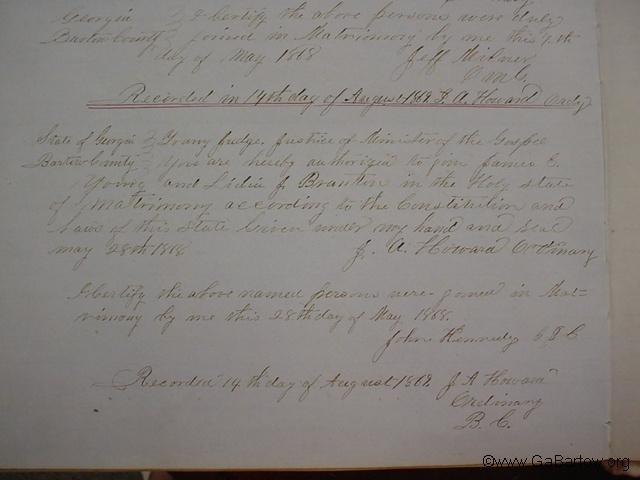 Georgia } I Certify the above persons were duly
Bartow County } joined in Matrimony by me this 7th
day of May 1868 Jeff Milner
Recorded in 14th day of August 1868 J. A. Howard Ordy
State of Georgia } To any Judge, Justice of Minister of the Gospel
Bartow County } You are hereby authorized to join James E.
Young and Lidia J. Branton in the Holy state
of Matrimony according to the Constitution and
Laws of this State Given under my hand and seal
May 28th 1868 J. A. Howard Ordinary
I Certify the above named persons were joined in Mat-
rimony by me this 28th day of May 1868.
John Kennedy J.I.C
Recorded 14th day of August 1868 J A Howard
Ordinary
B. C.
©www.GaBartow.org